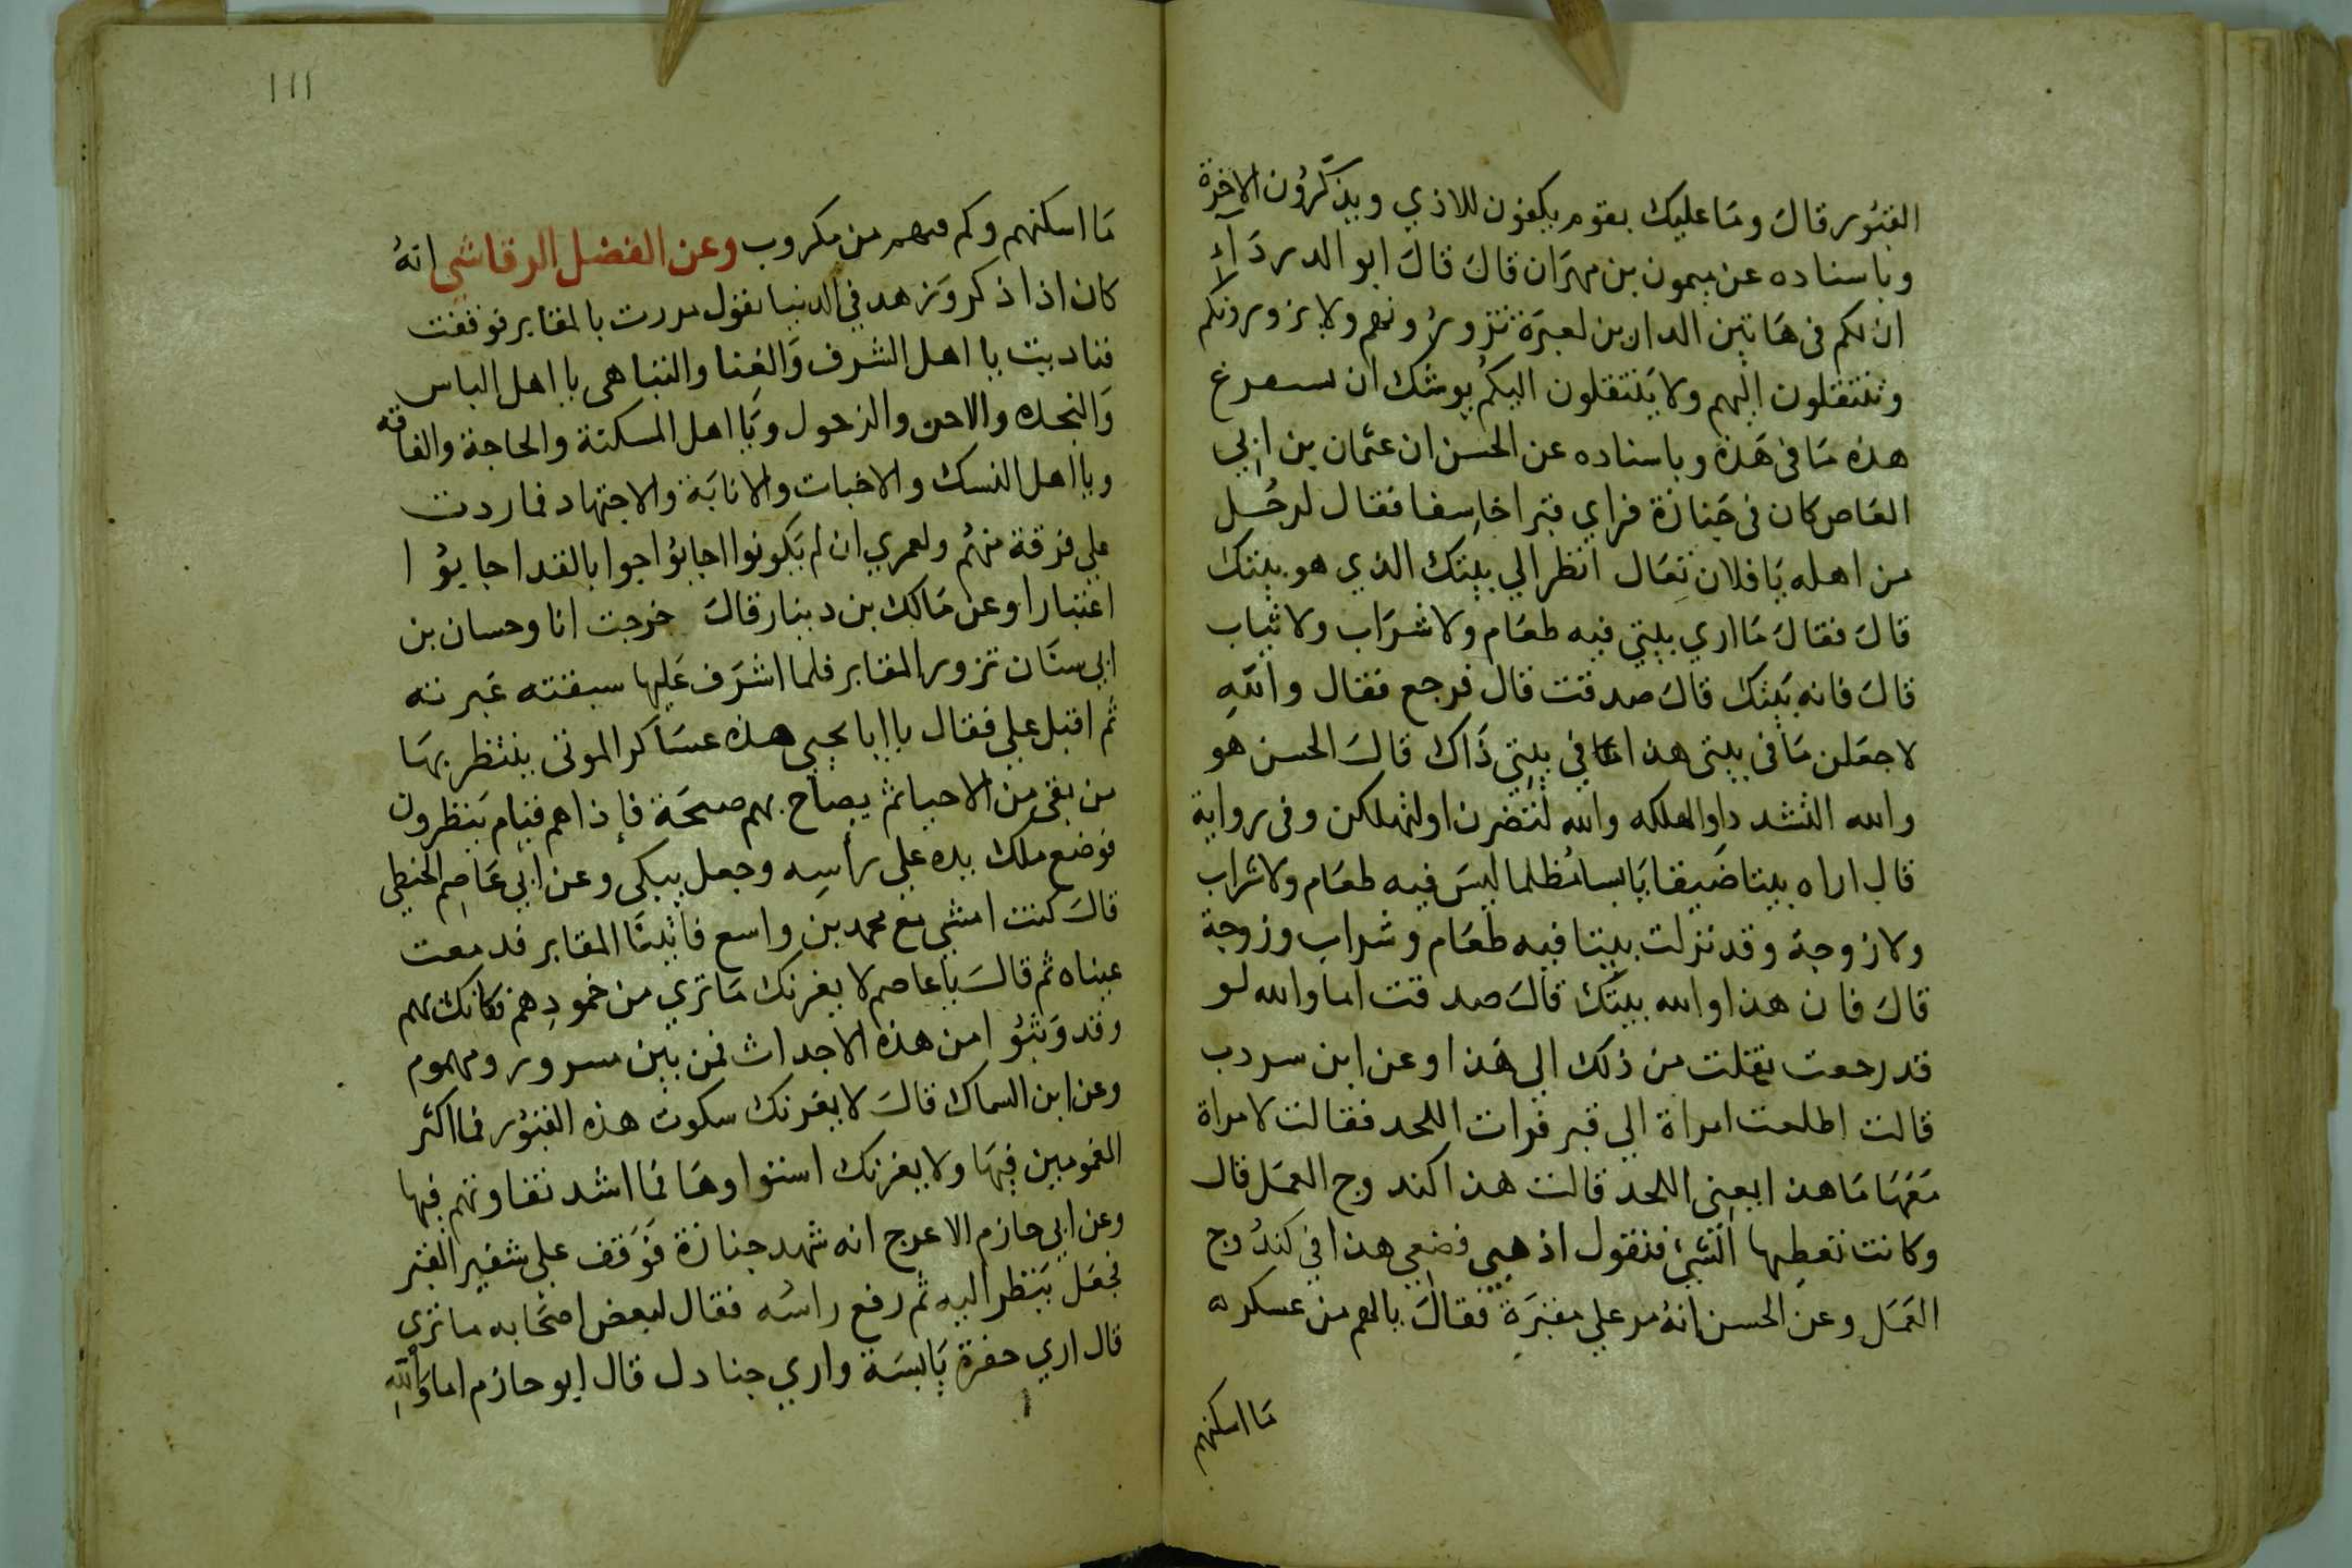 القبور قال وما عليك بقوم يكفون للاذي ويذكرون الاخرة
وباسناده عن ميمون بن مهران قال قال ابو الدرداء
ان لكم في هاتين الدارين لعبرة تزورونهم ولا يزورونكم
وتنتقلون اليهم ولا ينتقلون اليكم يوشك ان سعرغ
هذه ما في هذه وباسناده عن الحسن ان عثمان بن ابي
العاص كان في جنازة فراي قبرا خاسفا فقال لرجل
من اهله يا فلان تعال انظر الي بيتك الذي هو بيتك
قال فقال ما اري بيتي فيه طعام ولا شراب ولا ثياب
قال فانه بيتك قال صدقت قال فرجع فقال والله
لاجعلن ما في بيتي هذا في بيتي ذاك قال الحسن هو
والله التشدد او الهلكه والله لتضرن او لتهلكن وفي رواية
قال اراه بيتا ضيقا يابسا مظلما ليس فيه طعام ولا شراب
ولا زوجة وقد نزلت بيتا فيه طعام وشراب وزوجة
قال فان هذا والله بيتك قال صدقت اما والله لو
قد رجعت نقلت من ذلك الي هذا وعن ابن سردب
قالت اطلعت امراة الي قبر فرات اللحد فقالت لامراة
معها ما هذا يعني اللحد قالت هذا كندوج العمل قال
وكانت تعطيها الشيء فتقول اذهبي فضعي هذا في كندوج
العمل وعن الحسن انه مر علي مقبرة فقال يالهم من عسكر
ما اسكنهم
١١١
ما اسكنهم وكم فيهم من مكروب وعن الفضل الرقاشي انه
كان اذا ذكر وزهد في الدنيا يقول مررت بالمقابر فوقفت
فناديت يا اهل الشرف والغنا والتباهي يا اهل الباس
والنجده والاحن والذحول ويا اهل المسكنة والحاجة والفاقه
ويا اهل النسك والاخبات والانابة والاجتهاد فما ردت
علي فرقة منهم ولعمري ان لم يكونوا اجابوا جوابا لقد اجابوا
اعتبارا وعن مالك بن دينار قال خرجت انا وحسان بن
ابي سنان نزور المقابر فلما اشرف عليها سبقته عبرته
ثم اقبل علي فقال يا ابا يحيي هذه عساكر الموتي ينتظر بها
من بقي من الاحيا ثم يصاح بهم صيحة فإذا هم قيام ينظرون
فوضع ملك يده علي رأسه وجعل يبكي وعن ابي عاصم الحبطي
قال كنت امشي مع محمد بن واسع فاتينا المقابر فدمعت
عيناه ثم قال يا با عاصم لا يغرنك ما تري من خمودهم فكانك بهم
وقد وثبوا من هذه الاجداث فمن بين مسرور ومهموم
وعن ابن السماك قال لا يغرنك سكوت هذه القبور فما اكثر
المغمومين فيها ولا يغرنك استواوها فما اشد تفاوتهم فيها
وعن ابي حازم الاعرج انه شهد جنازة فوقف علي شفير القبر
فجعل ينظر اليه ثم رفع راسه فقال لبعض اصحابه ما تري
قال اري حفرة يابسة واري جنادل قال ابو حازم اما والله